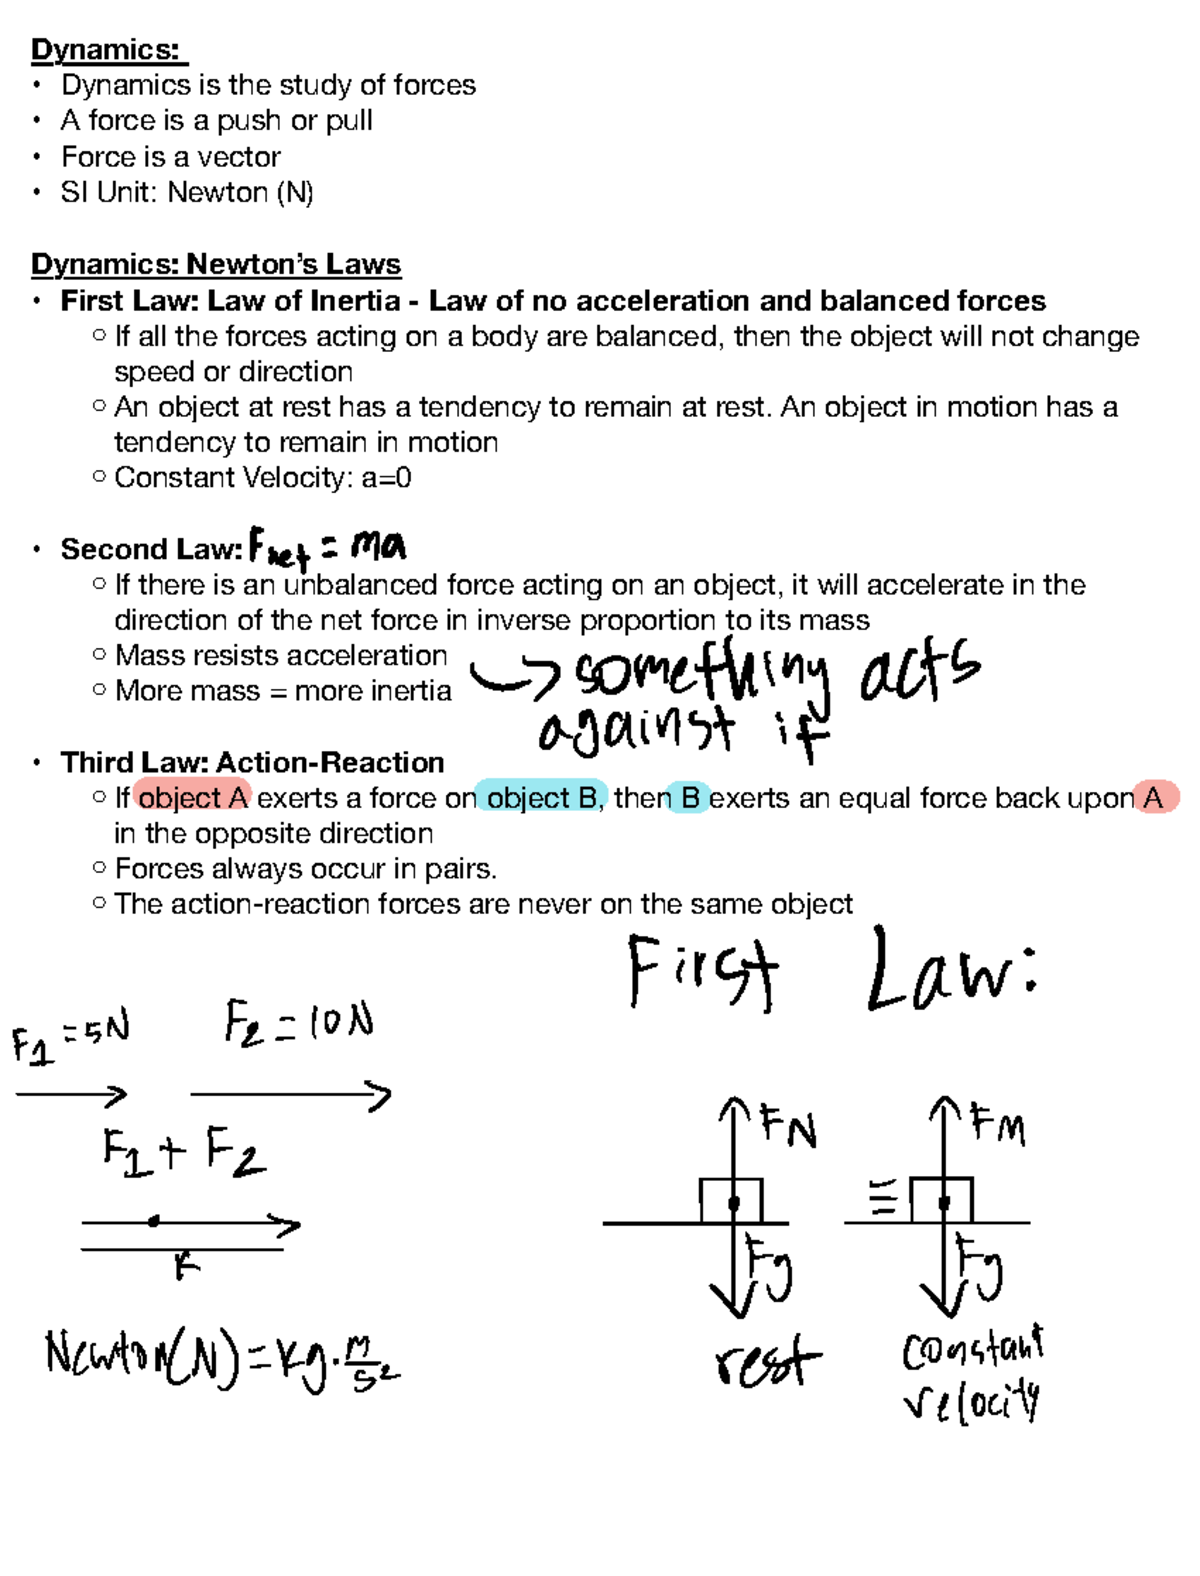 Dynamics:
• Dynamics is the study of forces
• A force is a push or pull
• Force is a vector
• SI Unit: Newton (N)
Dynamics: Newton's Laws
• First Law: Law of Inertia - Law of no acceleration and balanced forces
○ If all the forces acting on a body are balanced, then the object will not change
speed or direction
○ An object at rest has a tendency to remain at rest. An object in motion has a
tendency to remain in motion
○ Constant Velocity: a=0
• Second Law: Fnet = ma
○ If there is an unbalanced force acting on an object, it will accelerate in the
direction of the net force in inverse proportion to its mass
○ Mass resists acceleration
○ More mass = more inertia
something acts
against if
• Third Law: Action-Reaction
○ If object A exerts a force on object B, then B exerts an equal force back upon A
in the opposite direction
○ Forces always occur in pairs.
○ The action-reaction forces are never on the same object
First Law:
F1 = 5N F2 = 10N
F1 + F2
Newton(N) = kg·m/s²
FN
Fg
rest
FM
Fg
constant
velocity